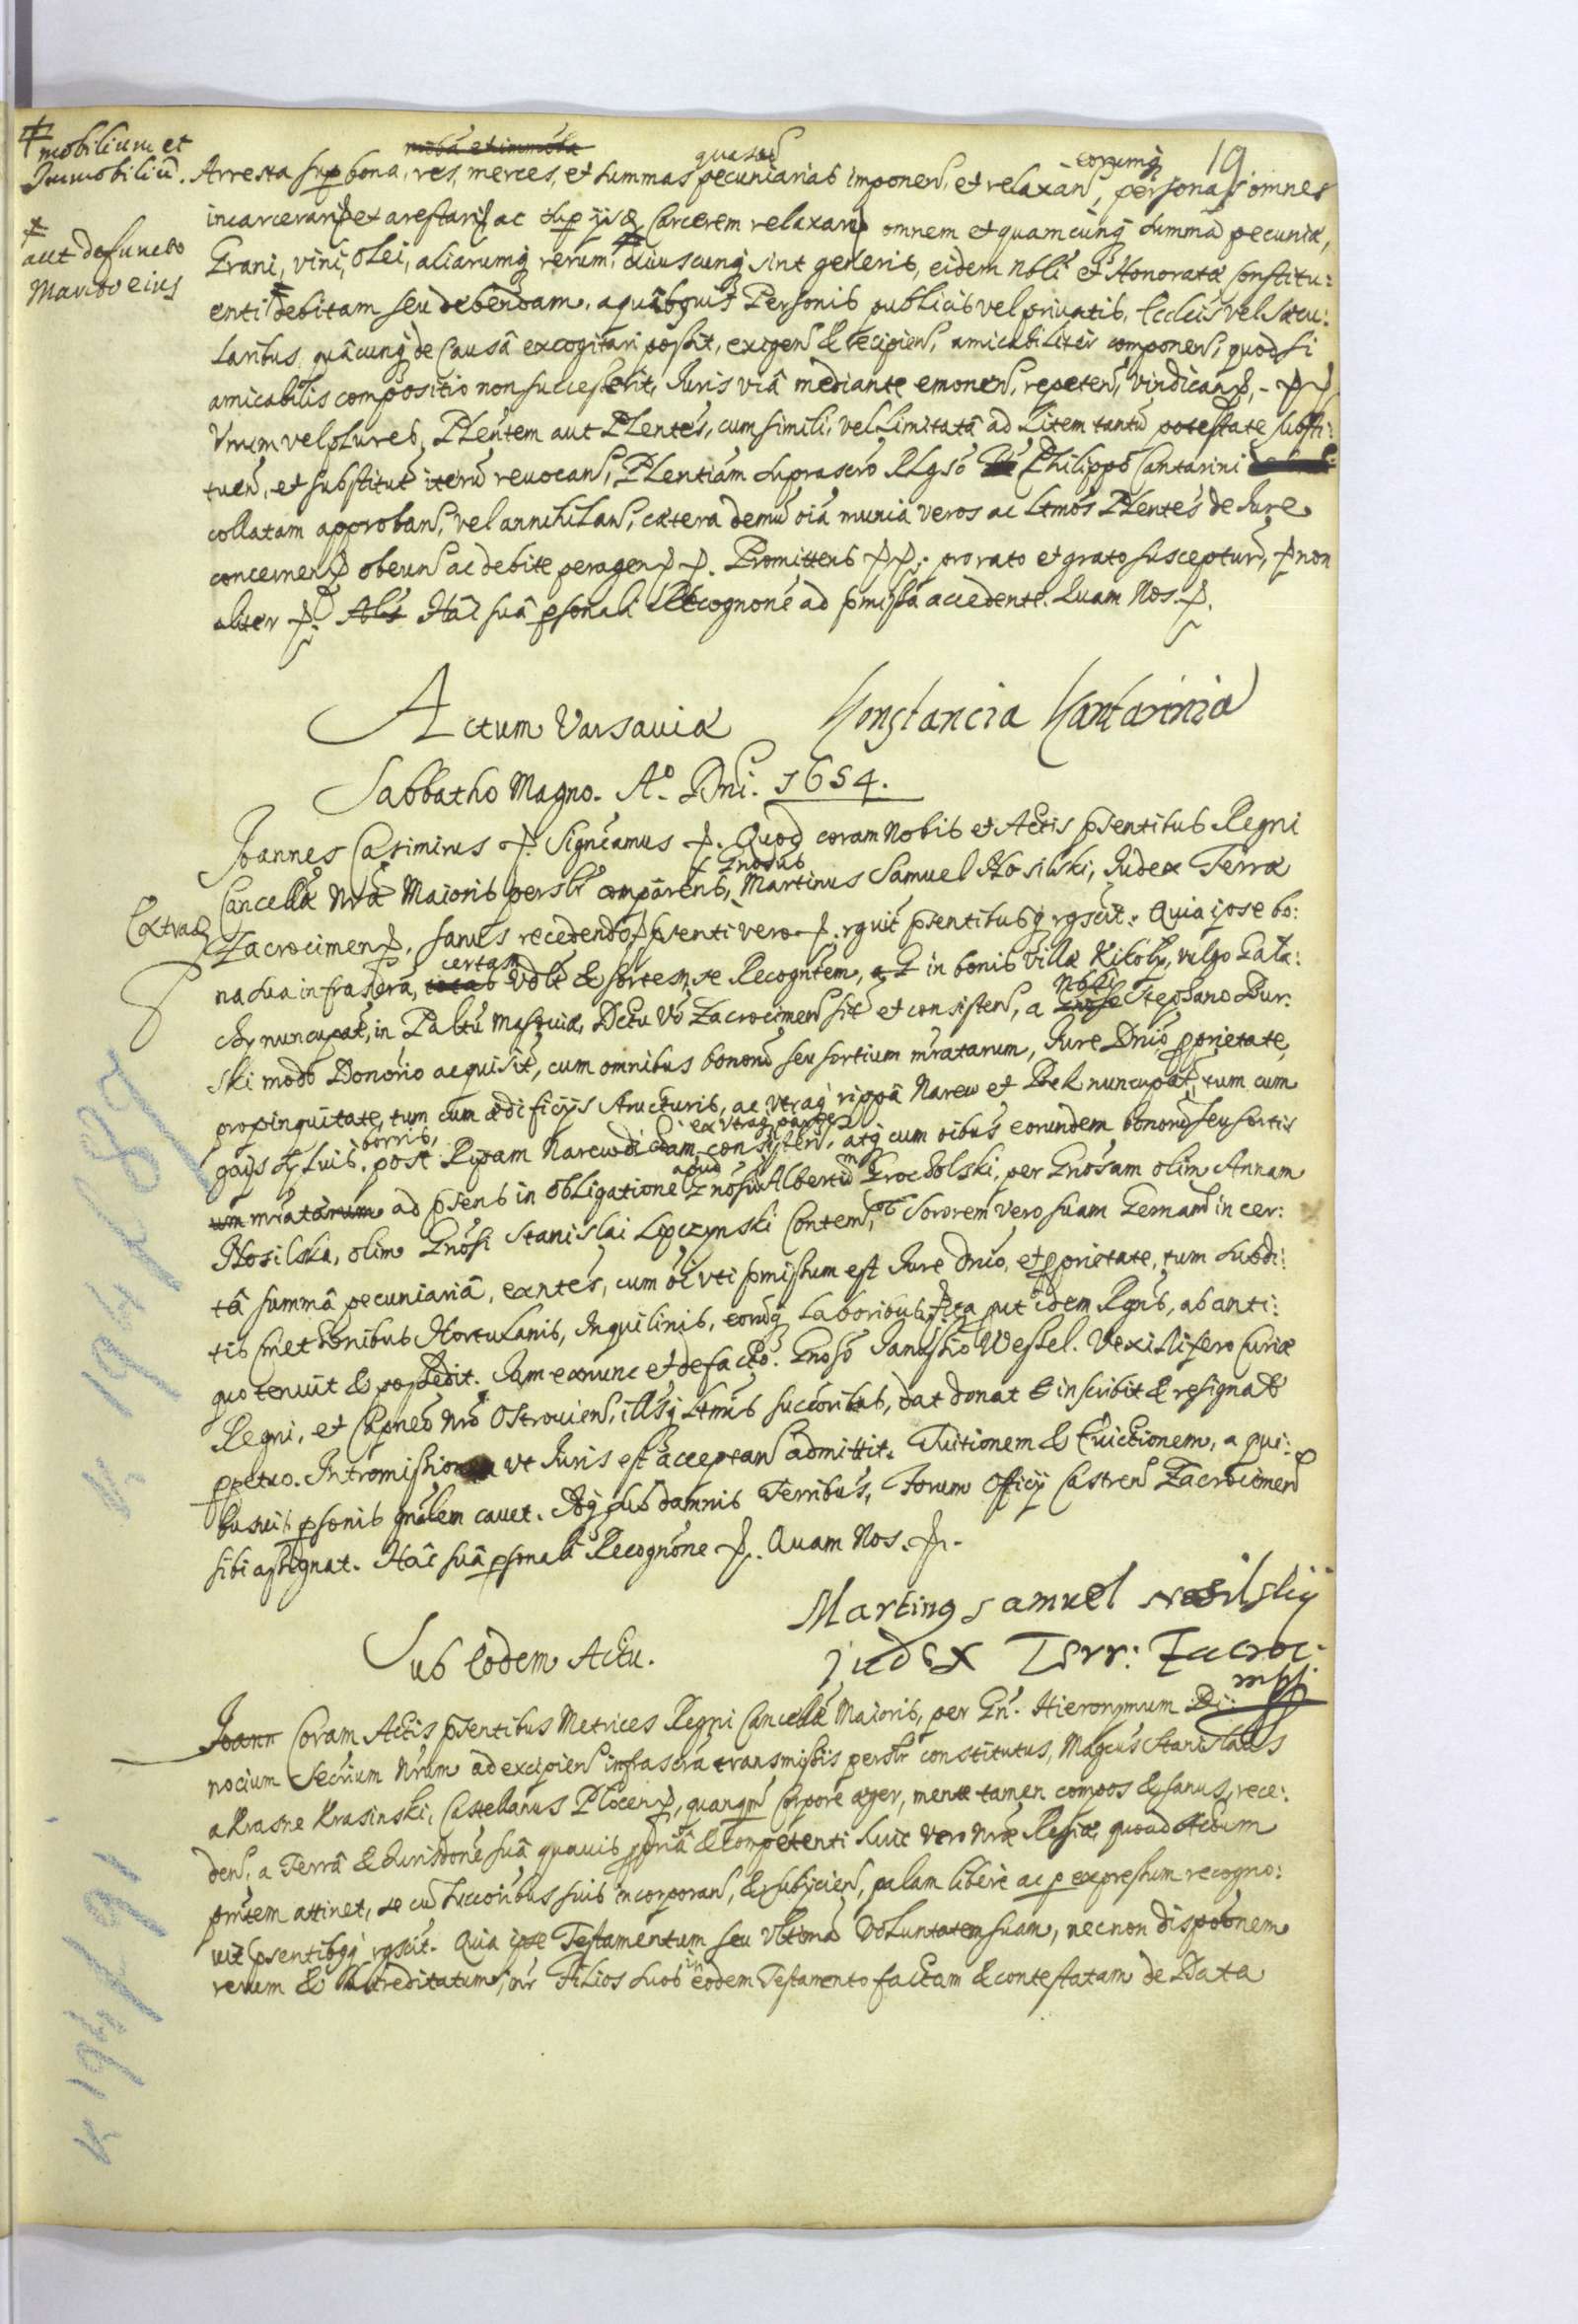 19
mobilium et
Immobiliũ.
aut defuncto
Marito eius
mobia et immobia
quasvis
eorumq
Arresta sup bona, res, merces, et summas pecuniarias imponen, et relaxan, personas omnes
incarcerari et arestari ac sup ijs Carcerem relaxari omnem et quamcunq summã pecuniæ,
Grani, vini, olei, aliarumq rerum, cuiuscunq sint generis, eidem Nbli et Honoratæ Constitu:
enti debitam seu debendam, a quibusvis Personis publicis vel privatis, Ecclicis vel Sæcu:
laribus, quâcunq de Causâ excogitari possit, exigen & recipien, amicabiliter componen, quod si
amicabilis compositio non successerit, Juris viâ mediante emonen, repeten, vindican,
Vnum vel plures, Plentem aut Plentes, cum simili, vel Limitatâ ad Litem tantũ potestate substi:
tuen, et substitut iterũ revocan, Plentiam suprascro Philippo Cantarini
collatam approban, vel annihilan, cætera demũ oia munia veros ac Ltmos Plentes de Jure
concernen obeun ac debite peragen. Promittens pro rato et grato susceptur, non
aliter Hac suâ psonali Recognone ad pmissa accedente. Quam Nos.
Actum Varsaviæ
Konstancia Kantarinia
Sabbatho Magno. Aº Dni. 1654.
Joannes Casimirus Signcamus Quod coram Nobis et Actis psentibus Regni
Gnosus
Cancellæ Nræ Maioris perslr comparens, Martinus Samuel Nosilski, Judex Terræ
Extrad
Zacrocimen, sanus recedendo psenti vero rguit psentibusq rgscit. Quia ipse bo:
certam
Nbli
na sua infrascra, totas vole & sortes se Recogntem, in bonis Villæ Kikoly, vulgo Gała:
chy nuncupat, in Paltu Masoviæ, Dctu Vo Zacrocimen sit et consisten, a Gnoso Stephano Bur:
ski modo Donorio acquisit, cum omnibus bonorũ seu sortium mratarum, Jure Dnio pprietate,
propinquitate, tum cum ædificijs structuris, ac utraq rippâ Narew et Bek nuncupat, tum cum
borris,
ex vtraq parte
gays syluis, post Ripam Narew dictam consisten, atq cum oibus eorundem bonorũ seu sortis
apud
um mratarum ad psens in obligatione Gnosũ Albertũ Grocholski, per Gnosam olim Annam
Nosilska, olim Gnosi Stanislai Lipczynski Contem, Sororem vero suam Germanã in cer:
tâ summâ pecuniariâ, exntes, cum oi vti pmissum est Jure Dnio, et pprietate, tum subdi:
tis Cmethonibus Hortulanis, Inquilinis, eorũq Laboribus, ita put idem Rgns, ab anti:
quo tenuit & possedit. Jam ex nunc et de facto. Gnoso Wessel. Vexillifero Curiæ
Regni, et Capneo Nro Ostrovien, illsq Ltmis succoribus, dat donat & inscribit & resignat
ppetuo. Intromission vt Juris est acceptan admittit. Tuitionem & Evictionem, a qui:
busvis psonis gnalem cavet. Atq sub damnis Terribus, Forum Officij Castren Zacrocimen
sibi assignat. Hac suâ psonali Recognone Quam Nos.
Martinus Samuel Nosilskij
judex Terr: Zacroc:
mpp.
Sub Eodem Actu.
Joann Coram Actis psentibus Metrices Regni Cancellæ Maioris, per Gn. Hieronymum Pi:
nocium Secrium Nrum ad excipien infrascra transmissis perslr constitutus, Magcus Stanislaus
a Krasne Krasinski, Castellanus Plocen, quanqm Corpore æger, mente tamen compos & sanus, rece:
den, a Terrâ & Jurisdone suâ quavis ppriâ & Competenti huic vero Nræ Regiæ, quoad Actum
pntem attinet, se cũ Succoribus suis incorporan, & subijcien, palam libere ac p expressum recogno:
uit psentibqq rgscit. Quia ipse Testamentum seu vltimã Voluntatem suam, necnon dispoonem
in
rerum & hæreditatum, inr Filios suos eodem Testamento factam & contestatam de Data
K 194 k 89
K 194 k 91